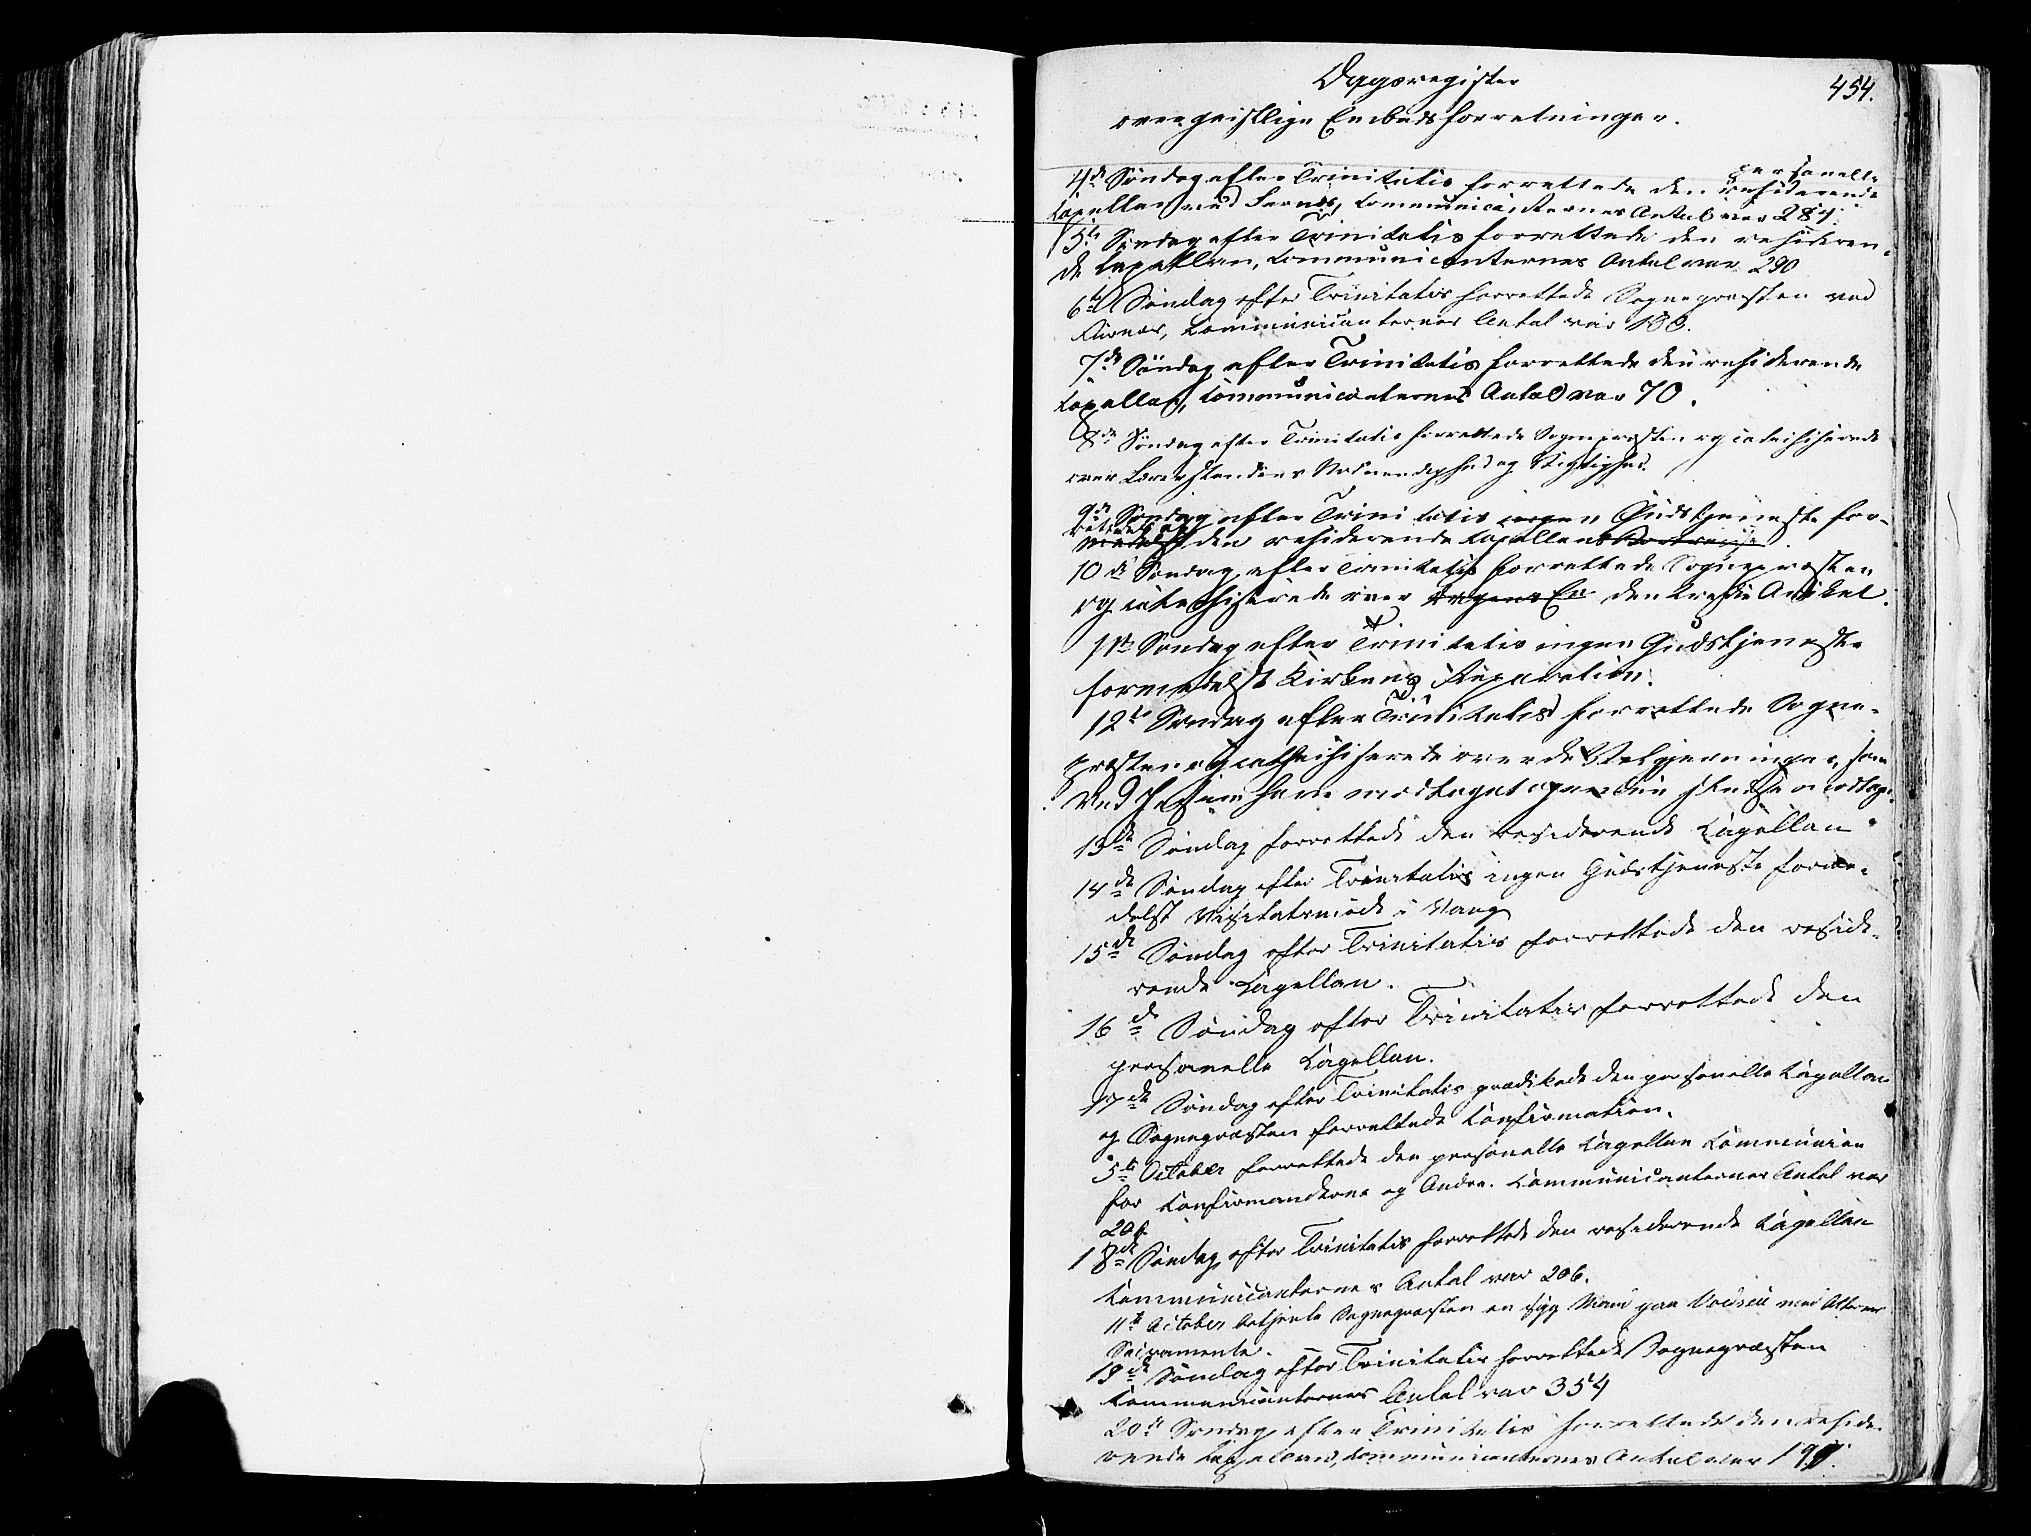 Dagsregister
454.
over geistlige Embedsforretninger.
personelle
4de Søndag efter Trinitatis forrettede den residerende
Kapellan ved Furnes, Communicanternes Antal var 284.
5te Søndag efter Trinitatis forrettede den resideren-
de Kapellan, Communicanternes Antal var 290
6te Søndag efter Trinitatis forrettede Sognepræsten ved
Furnes, Communicanternes Antal var 188.
7de Søndag efter Trinitatis forrettede den residerende
Kapellan, Communicanternes Antal var 70.
8de Søndag efter Trinitatis forrettede Sognepræsten og catechiserede
over Nødvendighed og Vigtighed.
9de Søndag efter Trinitatis ingen Gudstjeneste for-
medelst den residerende Kapellans
10de Søndag efter Trinitatis forrettede Sognepræsten
og catechiserede over dagens Ev den tredie Artikel.
11te Søndag efter Trinitatis ingen Gudstjeneste
formedelst Kirkens Reparation.
12te Søndag efter Trinitatis forrettede Sogne-
præsten og catechiserede over de Velgjerninger, som
ved Jesum have modtaget og endnu skulle modtage.
13de Søndag forrettede den residerende Capellan
14de Søndag efter Trinitatis ingen Gudstjeneste forme-
delst Visitatsmøde i Vang
15de Søndag efter Trinitatis forrettede den reside-
rende Capellan.
16de Søndag efter Trinitatis forrettede den
personelle Capellan.
17de Søndag efter Trinitatis prædikede den personelle Capellan
og Sognepræsten forrettede Confirmation.
5te October forrettede den personelle Capellan Communion
for Confirmanderne og Andre. Communicanternes Antal var
206.
18de Søndag efter Trinitatis forrettede den residerende Capellan
Communicanternes Antal var 206.
11te October betjente Sognepræsten en syg Mand paa med Alterens
Sacramente.
19de Søndag efter Trinitatis forrettede Sognepræsten
Communicanternes Antal var 354
20de Søndag efter Trinitatis forrettede den reside-
rende Kapellan, Communicanternes Antal var 191.